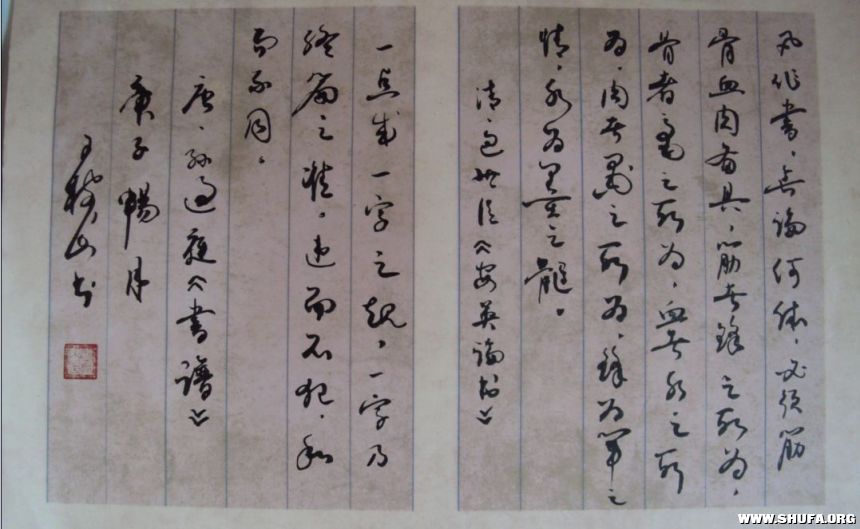 凡作書，无论何体，必须筋
骨血肉备具，筋者锋之所为，
骨者毫之所为，血者水之所
为，肉者墨之所为，锋为笔之
情，水为墨之髓。
清、包世臣《安吴论书》
一点成一字之规，一字乃
终篇之准。违而不犯，和
而不同。
唐、孙过庭《書谱》
庚子畅月
山书
WWW.SHUFA.ORG